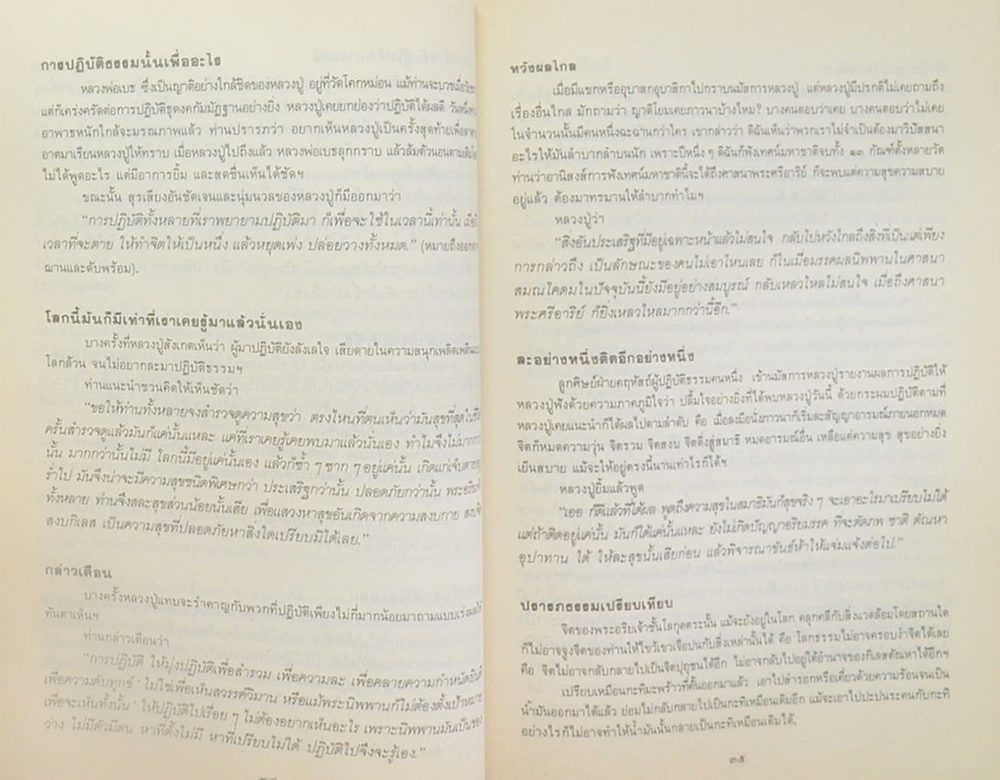 การปฏิบัติธรรมนั้นเพื่ออะไร
หลวงพ่อเบธ ซึ่งเป็นญาติอย่างใกล้ชิดของหลวงปู่ อยู่ที่วัดโคกหม่อน แม้ท่านจะบวชเมื่อ
แต่ก็เคร่งครัดต่อการปฏิบัติธุดงคกัมมัฏฐานอย่างยิ่ง หลวงปู่เคยยกย่องว่าปฏิบัติได้ผลดี วันหนึ่ง
อาพาธหนักใกล้จะมรณภาพแล้ว ท่านปรารภว่า อยากเห็นหลวงปู่เป็นครั้งสุดท้ายเพื่อลา
อาตมาเรียนหลวงปู่ให้ทราบ เมื่อหลวงปู่ไปถึงแล้ว หลวงพ่อเบธลุกกราบ แล้วล้มตัวนอนตามเดิม
ไม่ได้พูดอะไร แต่มีอาการยิ้ม และสดชื่นเห็นได้ชัดฯ
ขณะนั้น สุรเสียงอันชัดเจนและนุ่มนวลของหลวงปู่ก็มีออกมาว่า
“การปฏิบัติทั้งหลายที่เราพยายามปฏิบัติมา ก็เพื่อจะใช้ในเวลานี้เท่านั้น เมื่อถึง
เวลาที่จะตาย ให้ทำจิตให้เป็นหนึ่ง แล้วหยุดเพ่ง ปล่อยวางทั้งหมด.” (หมายถึงออกจาก
ฌานและดับพร้อม).
โลกนี้มันก็มีเท่าที่เราเคยรู้มาแล้วนั่นเอง
บางครั้งที่หลวงปู่สังเกตเห็นว่า ผู้มาปฏิบัติยังลังเลใจ เสียดายในความสนุกเพลิดเพลิน
โลกล้วน จนไม่อยากละมาปฏิบัติธรรมฯ
ท่านแนะนำชวนคิดให้เห็นชัดว่า
“ขอให้ท่านทั้งหลายจงสำรวจดูความสุขว่า ตรงไหนที่ตนเห็นว่ามันสุขที่สุดในชีวิต
ครั้นสำรวจดูแล้วมันก็แค่นั้นแหละ แค่ที่เราเคยรู้เคยพบมาแล้วนั่นเอง ทำไมจึงไม่มากกว่า
นั้น มากกว่านั้นไม่มี โลกนี้มีอยู่แค่นั้นเอง แล้วก็ซ้ำ ๆ ซาก ๆ อยู่แค่นั้น เกิดแก่เจ็บตายอยู่
ร่ำไป มันจึงน่าจะมีความสุขชนิดพิเศษกว่า ประเสริฐกว่านั้น ปลอดภัยกว่านั้น พระอริยเจ้า
ทั้งหลาย ท่านจึงสละสุขส่วนน้อยนั้นเสีย เพื่อแสวงหาสุขอันเกิดจากความสงบกาย สงบจิต
สงบกิเลส เป็นความสุขที่ปลอดภัยหาสิ่งใดเปรียบมิได้เลย.”
กล่าวเตือน
บางครั้งหลวงปู่แทบจะรำคาญกับพวกที่ปฏิบัติเพียงไม่กี่มากน้อยมาถามแบบเร่งผลให้
ทันตาเห็นฯ
ท่านกล่าวเตือนว่า
“การปฏิบัติ ให้มุ่งปฏิบัติเพื่อสำรวม เพื่อความละ เพื่อคลายความกำหนัดยินดี
เพื่อความดับทุกข์ ไม่ใช่เพื่อเห็นสวรรค์วิมาน หรือแม้พระนิพพานก็ไม่ต้องตั้งเป้าหมาย
เพื่อจะเห็นทั้งนั้น ให้ปฏิบัติไปเรื่อย ๆ ไม่ต้องอยากเห็นอะไร เพราะนิพพานมันเป็นของ
ว่าง ไม่มีตัวมีตน หาที่ตั้งไม่มี หาที่เปรียบไม่ได้ ปฏิบัติไปจึงจะรู้เอง.”
หวังผลไกล
เมื่อมีแขกหรืออุบาสกอุบาสิกาไปกราบนมัสการหลวงปู่ แต่หลวงปู่มีปรกติไม่เคยถามถึง
เรื่องอื่นไกล มักถามว่า ญาติโยมเคยภาวนาบ้างไหม? บางคนตอบว่าเคย บางคนตอบว่าไม่เคย
ในจำนวนนั้นมีคนหนึ่งฉะฉานกว่าใคร เขากล่าวว่า ดิฉันเห็นว่าพวกเราไม่จำเป็นต้องมาวิปัสสนา
อะไรให้มันลำบากลำบนนัก เพราะปีหนึ่ง ๆ ดิฉันก็ฟังเทศน์มหาชาติจบทั้ง ๑๓ กัณฑ์ตั้งหลายวัด
ท่านว่าอานิสงส์การฟังเทศน์มหาชาตินี้จะได้ถึงศาสนาพระศรีอาริย์ ก็จะพบแต่ความสุขความสบาย
อยู่แล้ว ต้องมาทรมานให้ลำบากทำไมฯ
หลวงปู่ว่า
“สิ่งอันประเสริฐที่มีอยู่เฉพาะหน้าแล้วไม่สนใจ กลับไปหวังไกลถึงสิ่งที่เป็นแต่เพียง
การกล่าวถึง เป็นลักษณะของคนไม่เอาไหนเลย ก็ในเมื่อมรรคผลนิพพานในศาสนา
สมณโคดมในปัจจุบันนี้ยังมีอยู่อย่างสมบูรณ์ กลับเหลวไหลไม่สนใจ เมื่อถึงศาสนา
พระศรีอาริย์ ก็ยิ่งเหลวไหลมากกว่านี้อีก.”
ละอย่างหนึ่งติดอีกอย่างหนึ่ง
ลูกศิษย์ฝ่ายคฤหัสถ์ผู้ปฏิบัติธรรมคนหนึ่ง เข้านมัสการหลวงปู่รายงานผลการปฏิบัติให้
หลวงปู่ฟังด้วยความภาคภูมิใจว่า ปลื้มใจอย่างยิ่งที่ได้พบหลวงปู่วันนี้ ด้วยกระผมปฏิบัติตามที่
หลวงปู่เคยแนะนำก็ได้ผลไปตามลำดับ คือ เมื่อลงมือนั่งภาวนาก็เริ่มละสัญญาอารมณ์ภายนอกหมด
จิตก็หมดความวุ่น จิตรวม จิตสงบ จิตดิ่งสู่สมาธิ หมดอารมณ์อื่น เหลือแต่ความสุข สุขอย่างยิ่ง
เย็นสบาย แม้จะให้อยู่ตรงนี้นานเท่าไรก็ได้ฯ
หลวงปู่ยิ้มแล้วพูด
“เออ ก็ดีแล้วที่ได้ผล พูดถึงความสุขในสมาธิมันก็สุขจริง ๆ จะเอาอะไรมาเปรียบไม่ได้
แต่ถ้าติดอยู่แค่นั้น มันก็ได้แค่นั้นแหละ ยังไม่เกิดปัญญาอริยมรรค ที่จะตัดภพ ชาติ ตัณหา
อุปาทาน ได้ ให้ละสุขนั้นเสียก่อน แล้วพิจารณาขันธ์ห้าให้แจ่มแจ้งต่อไป.”
ปรารภธรรมเปรียบเทียบ
จิตของพระอริยเจ้าชั้นโลกุตตระนั้น แม้จะยังอยู่ในโลก คลุกคลีกับสิ่งแวดล้อมโดยสถานใด
ก็ไม่อาจจูงจิตของท่านให้ไขว้เขวเจือปนกับสิ่งเหล่านั้นได้ คือ โลกธรรมไม่อาจครอบงำจิตได้เลย
คือ จิตไม่อาจกลับกลายไปเป็นจิตปุถุชนได้อีก ไม่อาจกลับไปอยู่ใต้อำนาจของกิเลสตัณหาได้อีกฯ
เปรียบเหมือนกะทิมะพร้าวที่คั้นออกมาแล้ว เอาไปสำรอกหรือเคี่ยวด้วยความร้อนจนเป็น
น้ำมันออกมาได้แล้ว ย่อมไม่กลับกลายไปเป็นกะทิเหมือนเดิมอีก แม้จะเอาไปปะปนระคนกับกะทิ
อย่างไรก็ไม่อาจทำให้น้ำมันนั้นกลายเป็นกะทิเหมือนเดิมได้.
๓๕